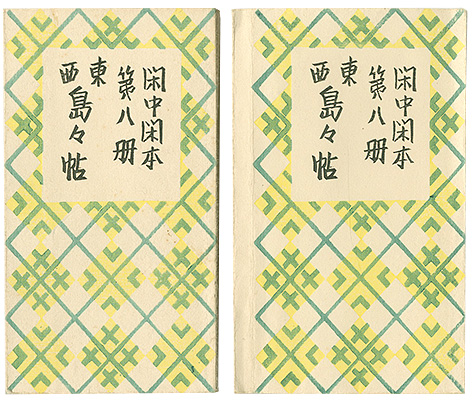 閑中閑本
第八册
東西島々帖
閑中閑本
第八册
東西島々帖